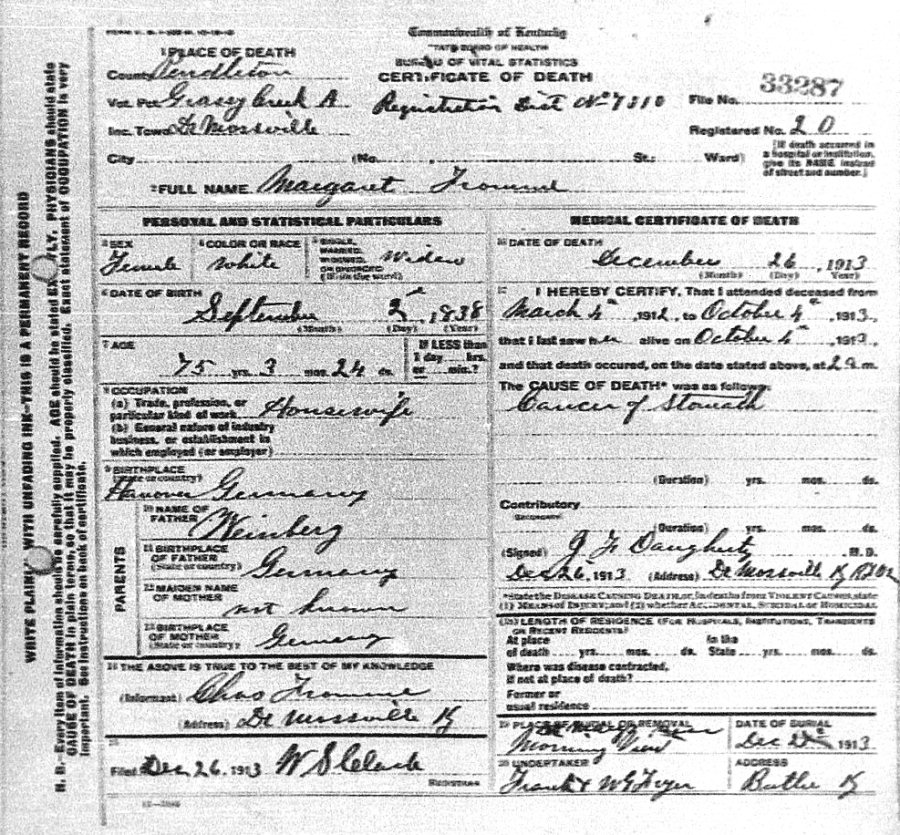 Commonwealth of Kentucky
STATE BOARD OF HEALTH
BUREAU OF VITAL STATISTICS
CERTIFICATE OF DEATH
1 PLACE OF DEATH
County Pendleton
Vot. Pct. Grassy Creek A
Registration Dist No 7310
File No. 33287
Inc. Town De Mossville
Registered No. 20
City (No. , St.; Ward)
[If death occurred in
a hospital or institution,
give its NAME instead
of street and number.]
2 FULL NAME Margaret Fromme
PERSONAL AND STATISTICAL PARTICULARS
3 SEX
Female
4 COLOR OR RACE
white
5 SINGLE,
MARRIED,
WIDOWED,
OR DIVORCED
(Write the word)
Widow
6 DATE OF BIRTH
September 2nd, 1838
(Month) (Day) (Year)
7 AGE
75 yrs. 3 mos. 24 ds.
If LESS than
1 day ... hrs.
or ... min.?
8 OCCUPATION
(a) Trade, profession, or
particular kind of work Housewife
(b) General nature of industry
business, or establishment in
which employed (or employer)
9 BIRTHPLACE
(State or country)
Hanover Germany
PARENTS
10 NAME OF
FATHER
Weinberg
11 BIRTHPLACE
OF FATHER
(State or country)
Germany
12 MAIDEN NAME
OF MOTHER
not known
13 BIRTHPLACE
OF MOTHER
(State or country)
Germany
14 THE ABOVE IS TRUE TO THE BEST OF MY KNOWLEDGE
(Informant) Chas Fromme
(Address) De Mossville Ky
15
Filed Dec 26, 1913 W S Clark
REGISTRAR
MEDICAL CERTIFICATE OF DEATH
16 DATE OF DEATH
December 26, 1913
(Month) (Day) (Year)
17 I HEREBY CERTIFY, That I attended deceased from
March 4th, 1912, to October 4th, 1913,
that I last saw her alive on October 4th, 1913,
and that death occured, on the date stated above, at 2 a m.
The CAUSE OF DEATH* was as follows:
Cancer of Stomach
(Duration) yrs. mos. ds.
Contributory
SECONDARY
(Duration) yrs. mos. ds.
(Signed) J F Daugherty M. D.
Dec 26, 1913 (Address) De Mossville Ky
*State the DISEASE CAUSING DEATH, or, in deaths from VIOLENT CAUSES, state
(1) MEANS OF INJURY; and (2) whether ACCIDENTAL, SUICIDAL or HOMICIDAL
18 LENGTH OF RESIDENCE (FOR HOSPITALS, INSTITUTIONS, TRANSIENTS
OR RECENT RESIDENTS)
At place In the
of death yrs. mos. ds. State yrs. mos. ds.
Where was disease contracted,
if not at place of death?
Former or
usual residence
19 PLACE OF BURIAL OR REMOVAL
Morning View
DATE OF BURIAL
Dec 1913
20 UNDERTAKER
Frank &
ADDRESS
Butler Ky
WRITE PLAINLY WITH UNFADING INK—THIS IS A PERMANENT RECORD
N. B.—Every item of information should be carefully supplied. AGE should be stated EXACTLY. PHYSICIANS should state
CAUSE OF DEATH in plain terms, so that it may be properly classified. Exact statement of OCCUPATION is very
important. See instructions on back of certificate.